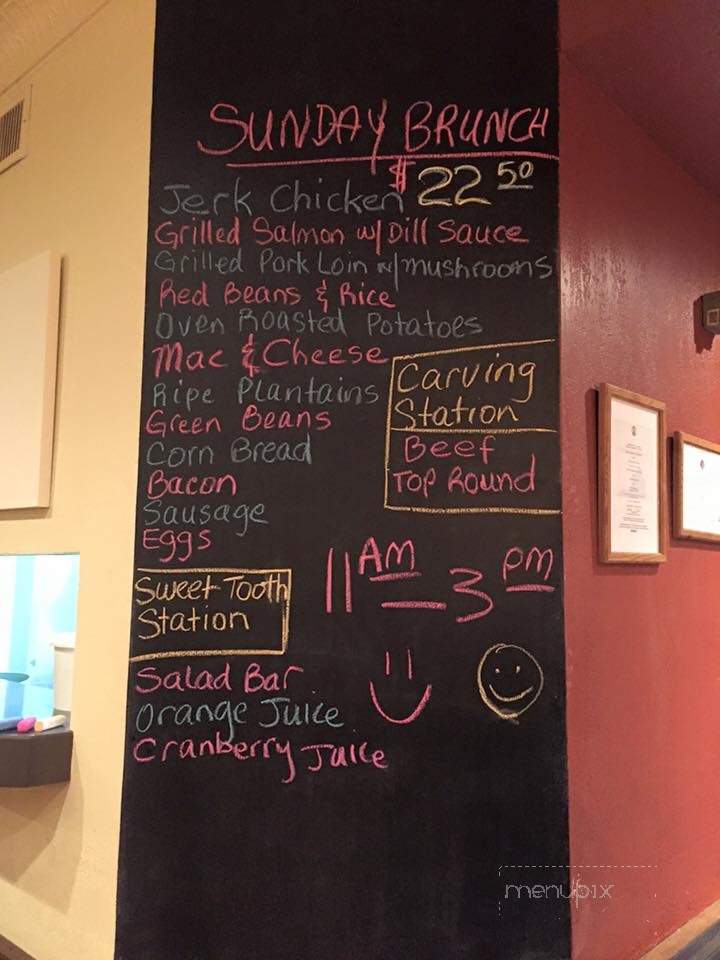 SUNDAY BRUNCH
$22 50
Jerk Chicken
Grilled Salmon w/ Dill Sauce
Grilled Pork Loin w/ mushrooms
Red Beans & Rice
Oven Roasted Potatoes
Mac & Cheese
Ripe Plantains
Green Beans
Corn Bread
Bacon
Sausage
Eggs
Carving
Station
Beef
Top Round
11 AM — 3 PM
Sweet Tooth
Station
Salad Bar
Orange Juice
Cranberry Juice
menupix